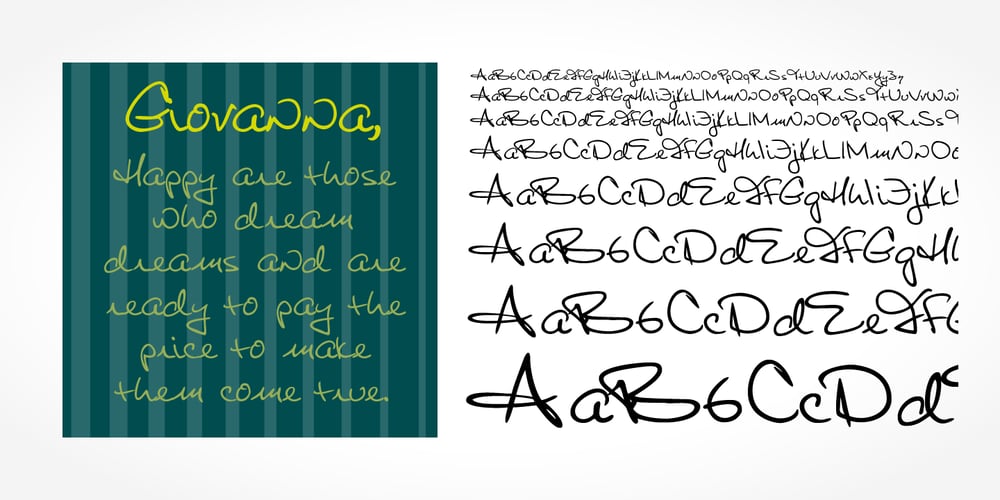 Giovanna,
Happy are those
who dream
dreams and are
ready to pay the
price to make
them come true.
AaBbCcDdEeFfGgHhIiJjKkLlMmNnOoPpQqRrSsTtUuVvWwXxYyZz
AaBbCcDdEeFfGgHhIiJjKkLlMmNnOoPpQqRrSsTtUuVvWw
AaBbCcDdEeFfGgHhIiJjKkLlMmNnOoPpQqRrSsT
AaBbCcDdEeFfGgHhIiJjKkLlMmNnOo
AaBbCcDdEeFfGgHhIiJjKkL
AaBbCcDdEeFfGgH
AaBbCcDdEeFfG
AaBbCcDd